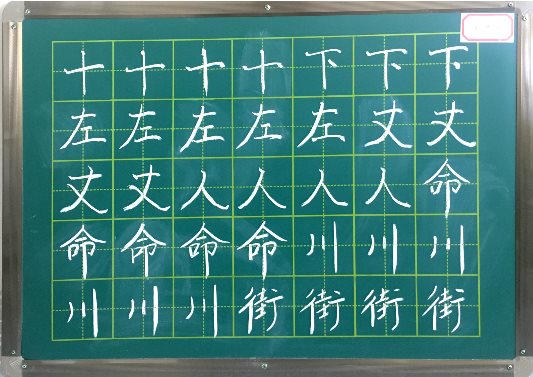 十十十十下下下
左左左左左丈丈
丈丈人人人人命
命命命命川川川
川川川街街街街